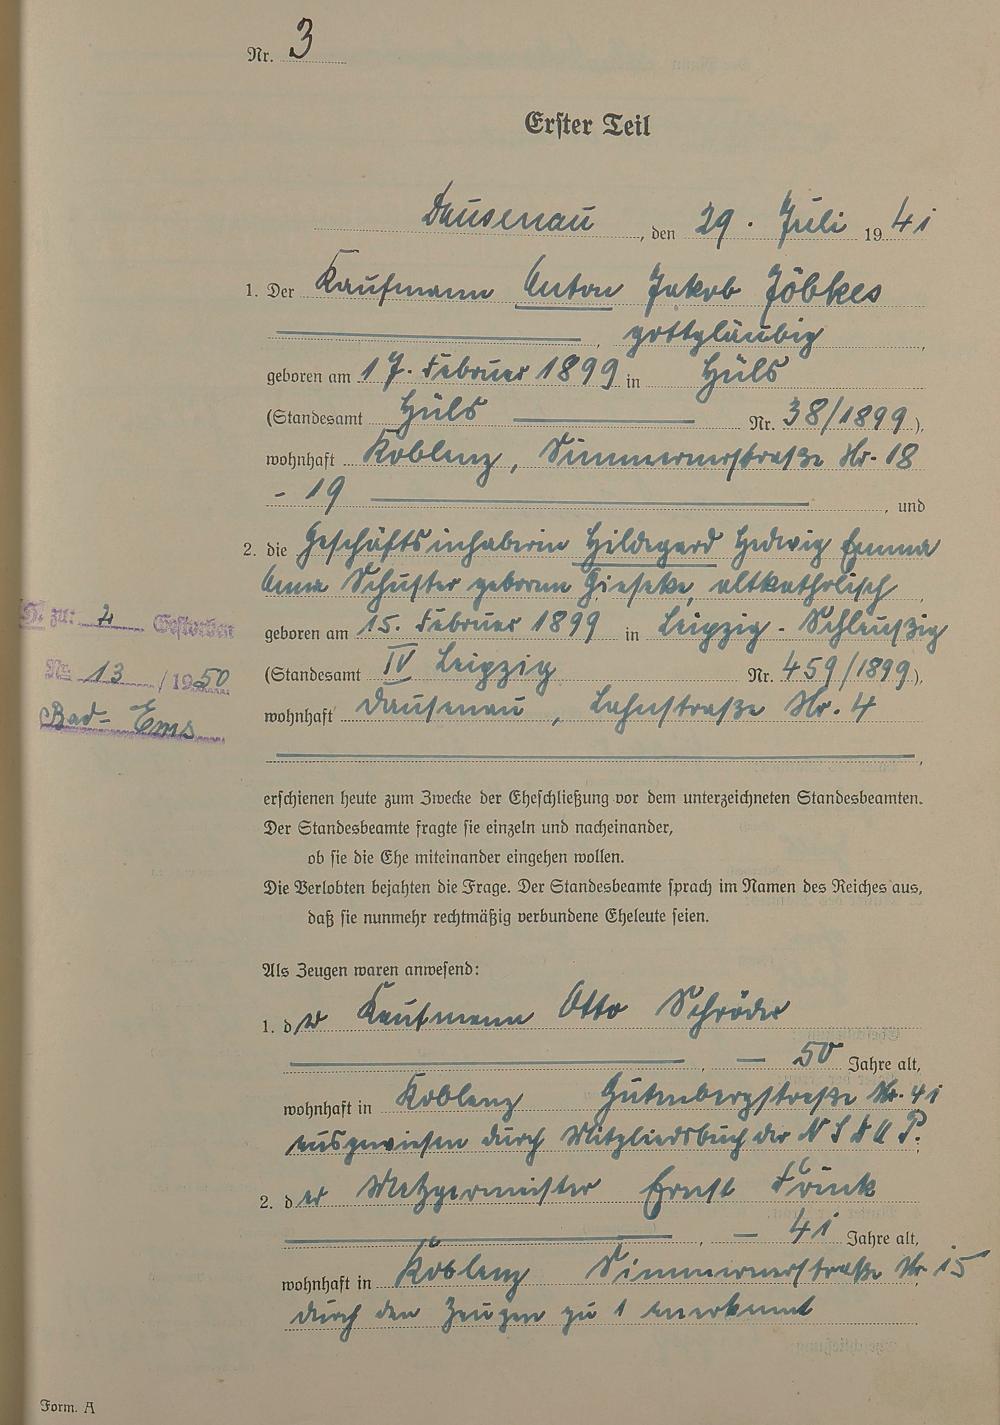 Nr. 3
Erster Teil
Dausenau, den 29. Juli 1941
1. Der Kaufmann Anton Jakob Jöbkes
, gottgläubig,
geboren am 17. Februar 1899 in Hüls
(Standesamt Hüls Nr. 38/1899),
wohnhaft Koblenz, Simmernerstraße Nr. 18
- 19, und
2. die Geschäftsinhaberin Hildegard Hedwig Emma
Anna Schuster geborene Gieseke, altkatholisch,
geboren am 15. Februar 1899 in Leipzig - Schleußig
(Standesamt IV Leipzig Nr. 459/1899),
wohnhaft Dausenau, Lahnstraße Nr. 4
,
zu: 2 Gestorben
Nr. 13 / 1950
Bad-Ems
erschienen heute zum Zwecke der Eheschließung vor dem unterzeichneten Standesbeamten.
Der Standesbeamte fragte sie einzeln und nacheinander,
ob sie die Ehe miteinander eingehen wollen.
Die Verlobten bejahten die Frage. Der Standesbeamte sprach im Namen des Reiches aus,
daß sie nunmehr rechtmäßig verbundene Eheleute seien.
Als Zeugen waren anwesend:
1. der Kaufmann Otto Schröder
, — 50 Jahre alt,
wohnhaft in Koblenz Gutenbergstraße Nr. 41
ausgewiesen durch Mitgliedsbuch der N S D A P.
2. der Metzgermeister Ernst
, — 41 Jahre alt,
wohnhaft in Koblenz Simmernerstraße Nr 15
durch den Zeugen zu 1 anerkannt
Form. A